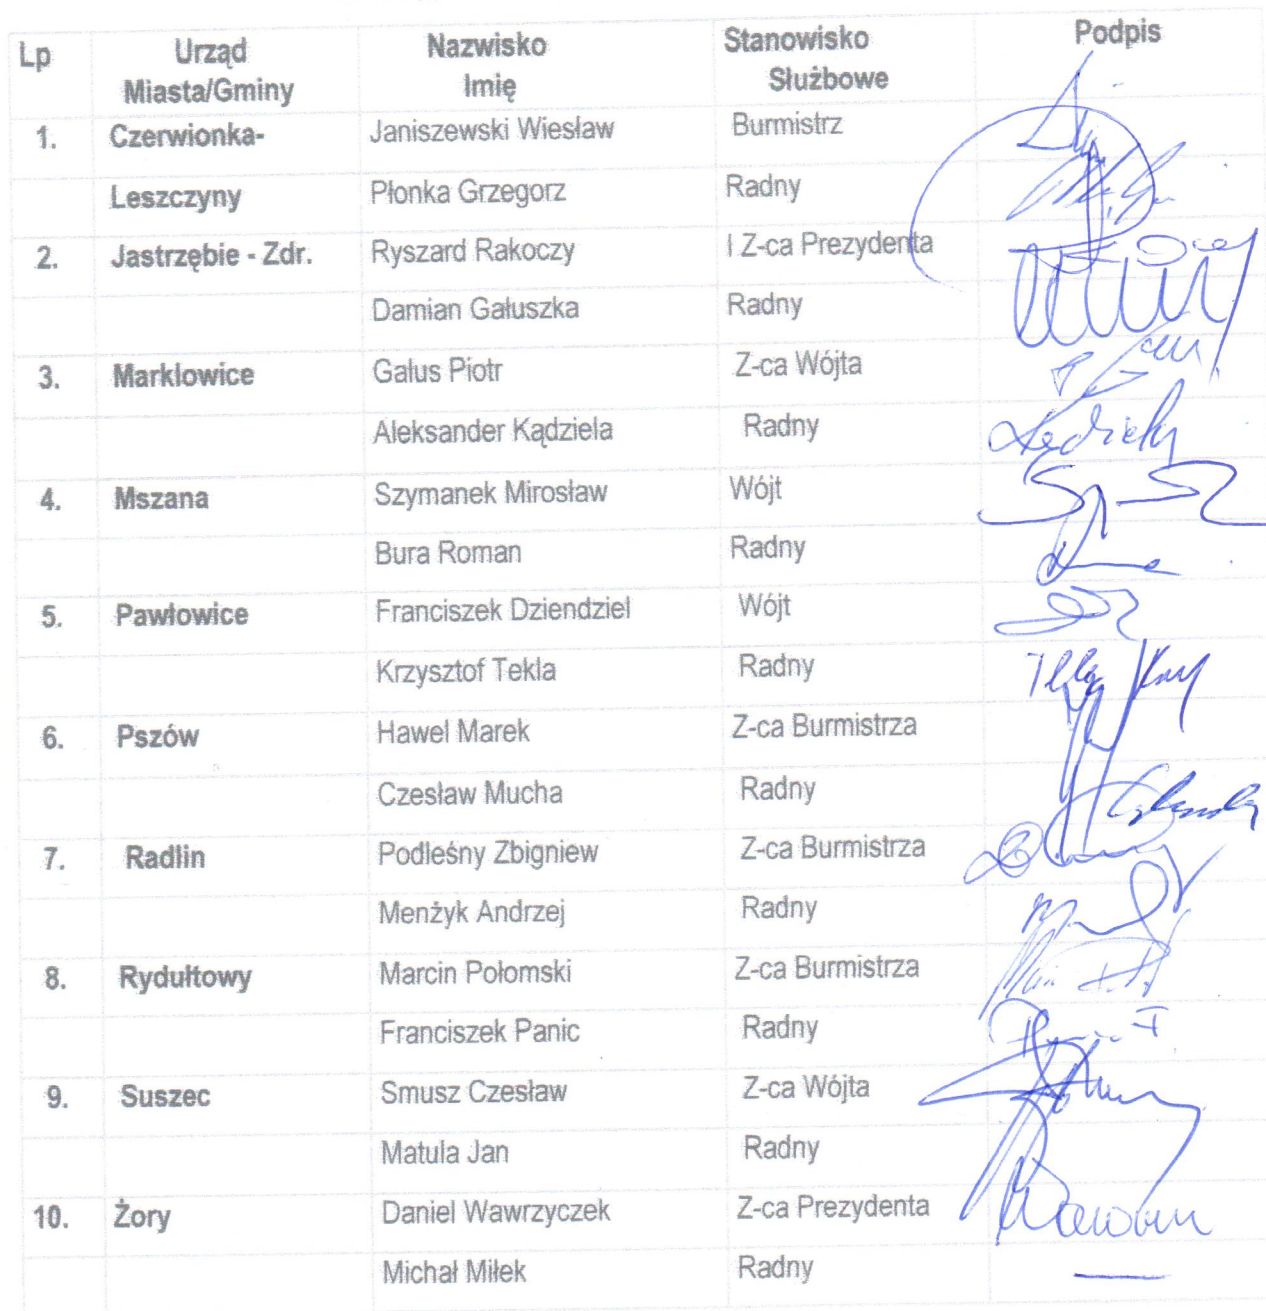 Lp Urząd Miasta/Gminy Nazwisko Imię Stanowisko Służbowe Podpis
1. Czerwionka- Janiszewski Wiesław Burmistrz
Leszczyny Płonka Grzegorz Radny
2. Jastrzębie - Zdr. Ryszard Rakoczy I Z-ca Prezydenta
Damian Gałuszka Radny
3. Marklowice Galus Piotr Z-ca Wójta
Aleksander Kądziela Radny
4. Mszana Szymanek Mirosław Wójt
Bura Roman Radny
5. Pawłowice Franciszek Dziendziel Wójt
Krzysztof Tekla Radny
6. Pszów Hawel Marek Z-ca Burmistrza
Czesław Mucha Radny
7. Radlin Podleśny Zbigniew Z-ca Burmistrza
Menżyk Andrzej Radny
8. Rydułtowy Marcin Połomski Z-ca Burmistrza
Franciszek Panic Radny
9. Suszec Smusz Czesław Z-ca Wójta
Matula Jan Radny
10. Żory Daniel Wawrzyczek Z-ca Prezydenta
Michał Miłek Radny